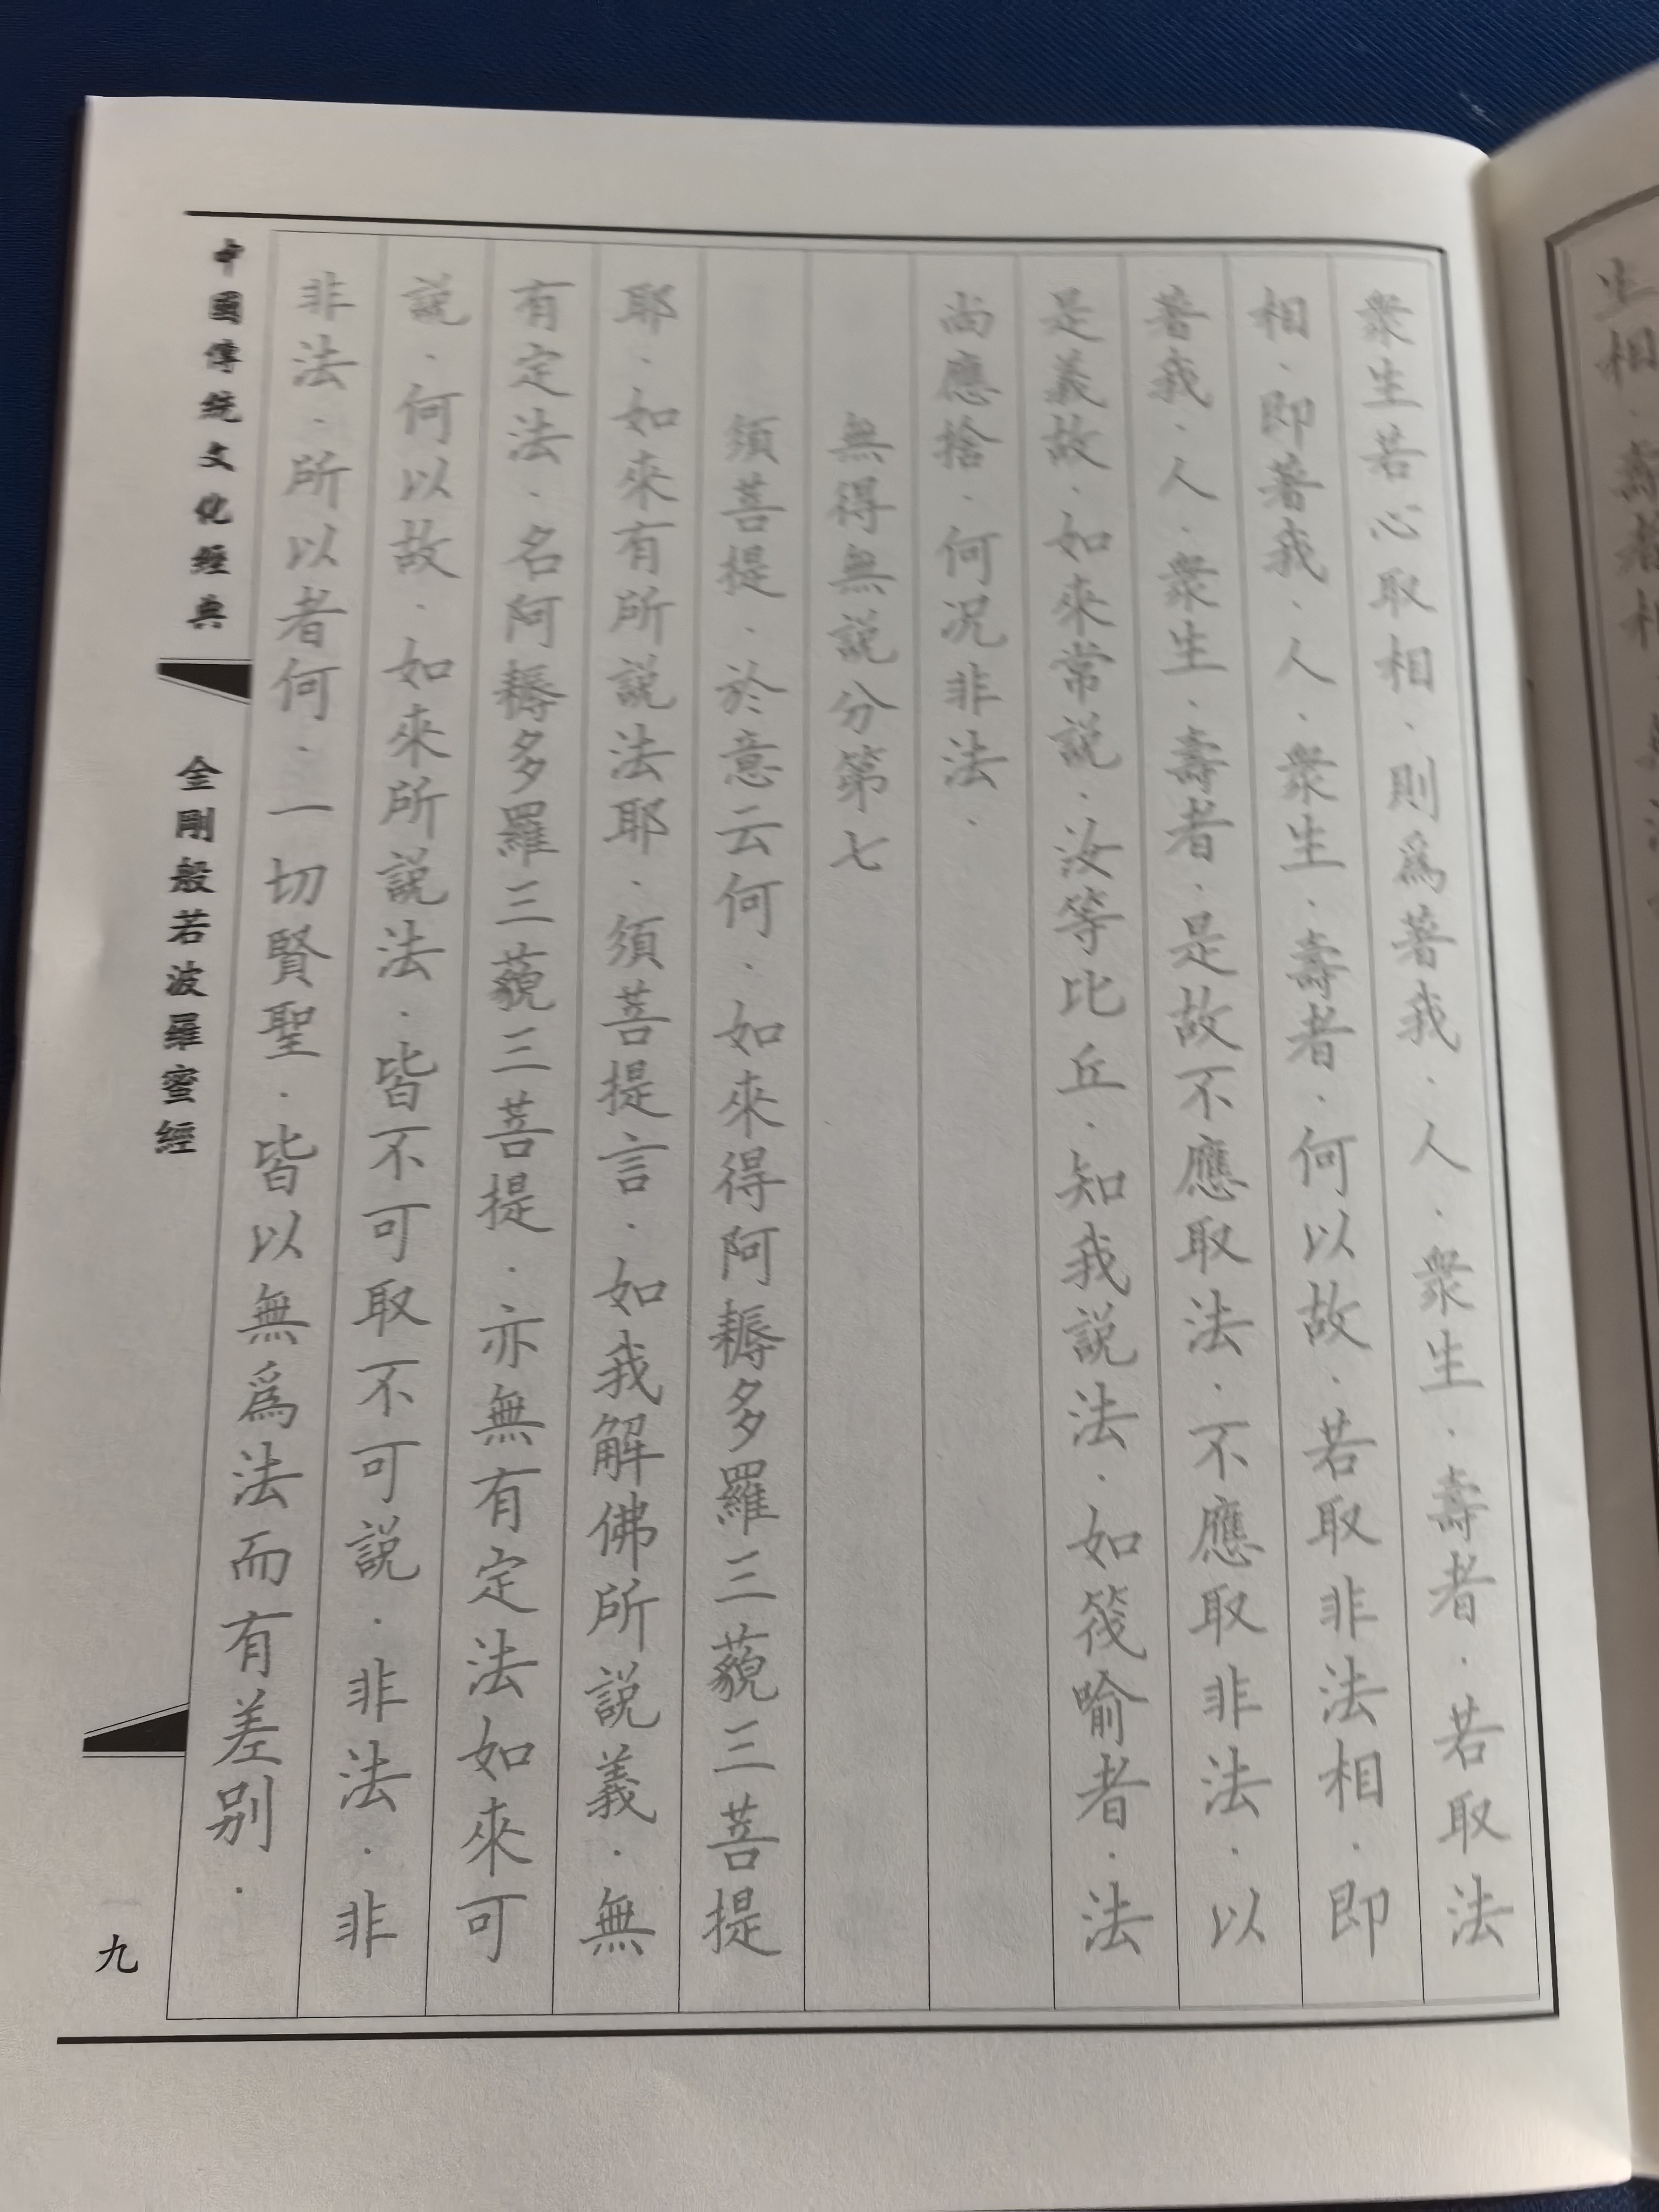 衆生若心取相·則爲著我·人·衆生·壽者·若取法
相·即著我·人·衆生·壽者·何以故·若取非法相·即
著我·人·衆生·壽者·是故不應取法·不應取非法·以
是義故·如來常説·汝等比丘·知我説法·如筏喻者·法
尚應捨·何况非法·
無得無説分第七
須菩提·於意云何·如來得阿耨多羅三藐三菩提
耶·如來有所説法耶·須菩提言·如我解佛所説義·無
有定法·名阿耨多羅三藐三菩提·亦無有定法如來可
説·何以故·如來所説法·皆不可取不可説·非法·非
非法·所以者何·一切賢聖·皆以無爲法而有差别·
中國傳統文化經典
金剛般若波羅蜜經
九